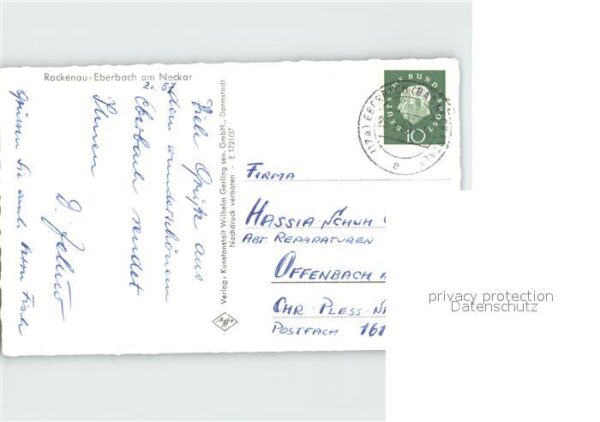 Rockenau-Eberbach am Neckar
Viele Grüße aus
dem wunderschönen
Eberbach sendet
Ihnen
Grüssen Sie auch Herrn Fisch
Verlag: Kunstanstalt Wilhelm Gerling sen. GmbH., Darmstadt
Nachdruck verboten - E 1721/37
Agfa
DEUTSCHE BUNDESPOST
10
(17a) EBERBACH
a
FIRMA
HASSIA SCHUH
ABT. REPARATUREN
OFFENBACH
CHR. PLESS-
POSTFACH 161
privacy protection
Datenschutz